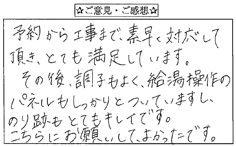 ☆ご意見・ご感想☆
予約から工事まで、素早く対応して
頂き、とても満足しています。
その後、調子もよく、給湯操作の
パネルもしっかりとついていますし、
のり跡もとてもキレイです。
こちらにお願いして、よかったです。